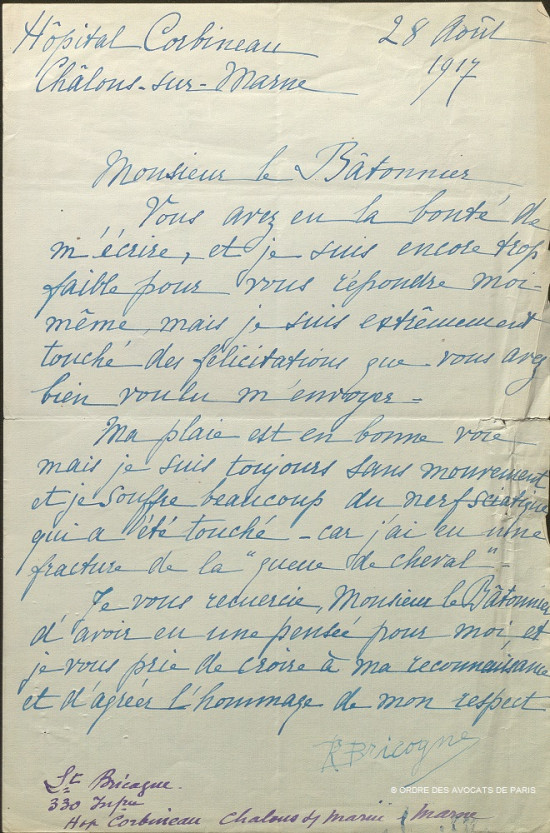 Hôpital Corbineau
Châlons-sur-Marne
28 Août
1917
Monsieur le Bâtonnier
Vous avez eu la bonté de
m'écrire, et je suis encore trop
faible pour vous répondre moi-
même, mais je suis extrêmement
touché des félicitations que vous avez
bien voulu m'envoyer -
Ma plaie est en bonne voie
mais je suis toujours sans mouvement
et je souffre beaucoup du nerf sciatique
qui a été touché - car j'ai eu une
fracture de la "queue de cheval" -
Je vous remercie, Monsieur le Bâtonnier
d'avoir eu une pensée pour moi, et
je vous prie de croire à ma reconnaissance
et d'agréer l'hommage de mon respect
R Bricogne
Lt Bricogne
330 Infie
Hop Corbineau Chalons s/ Marne Marne
© ORDRE DES AVOCATS DE PARIS